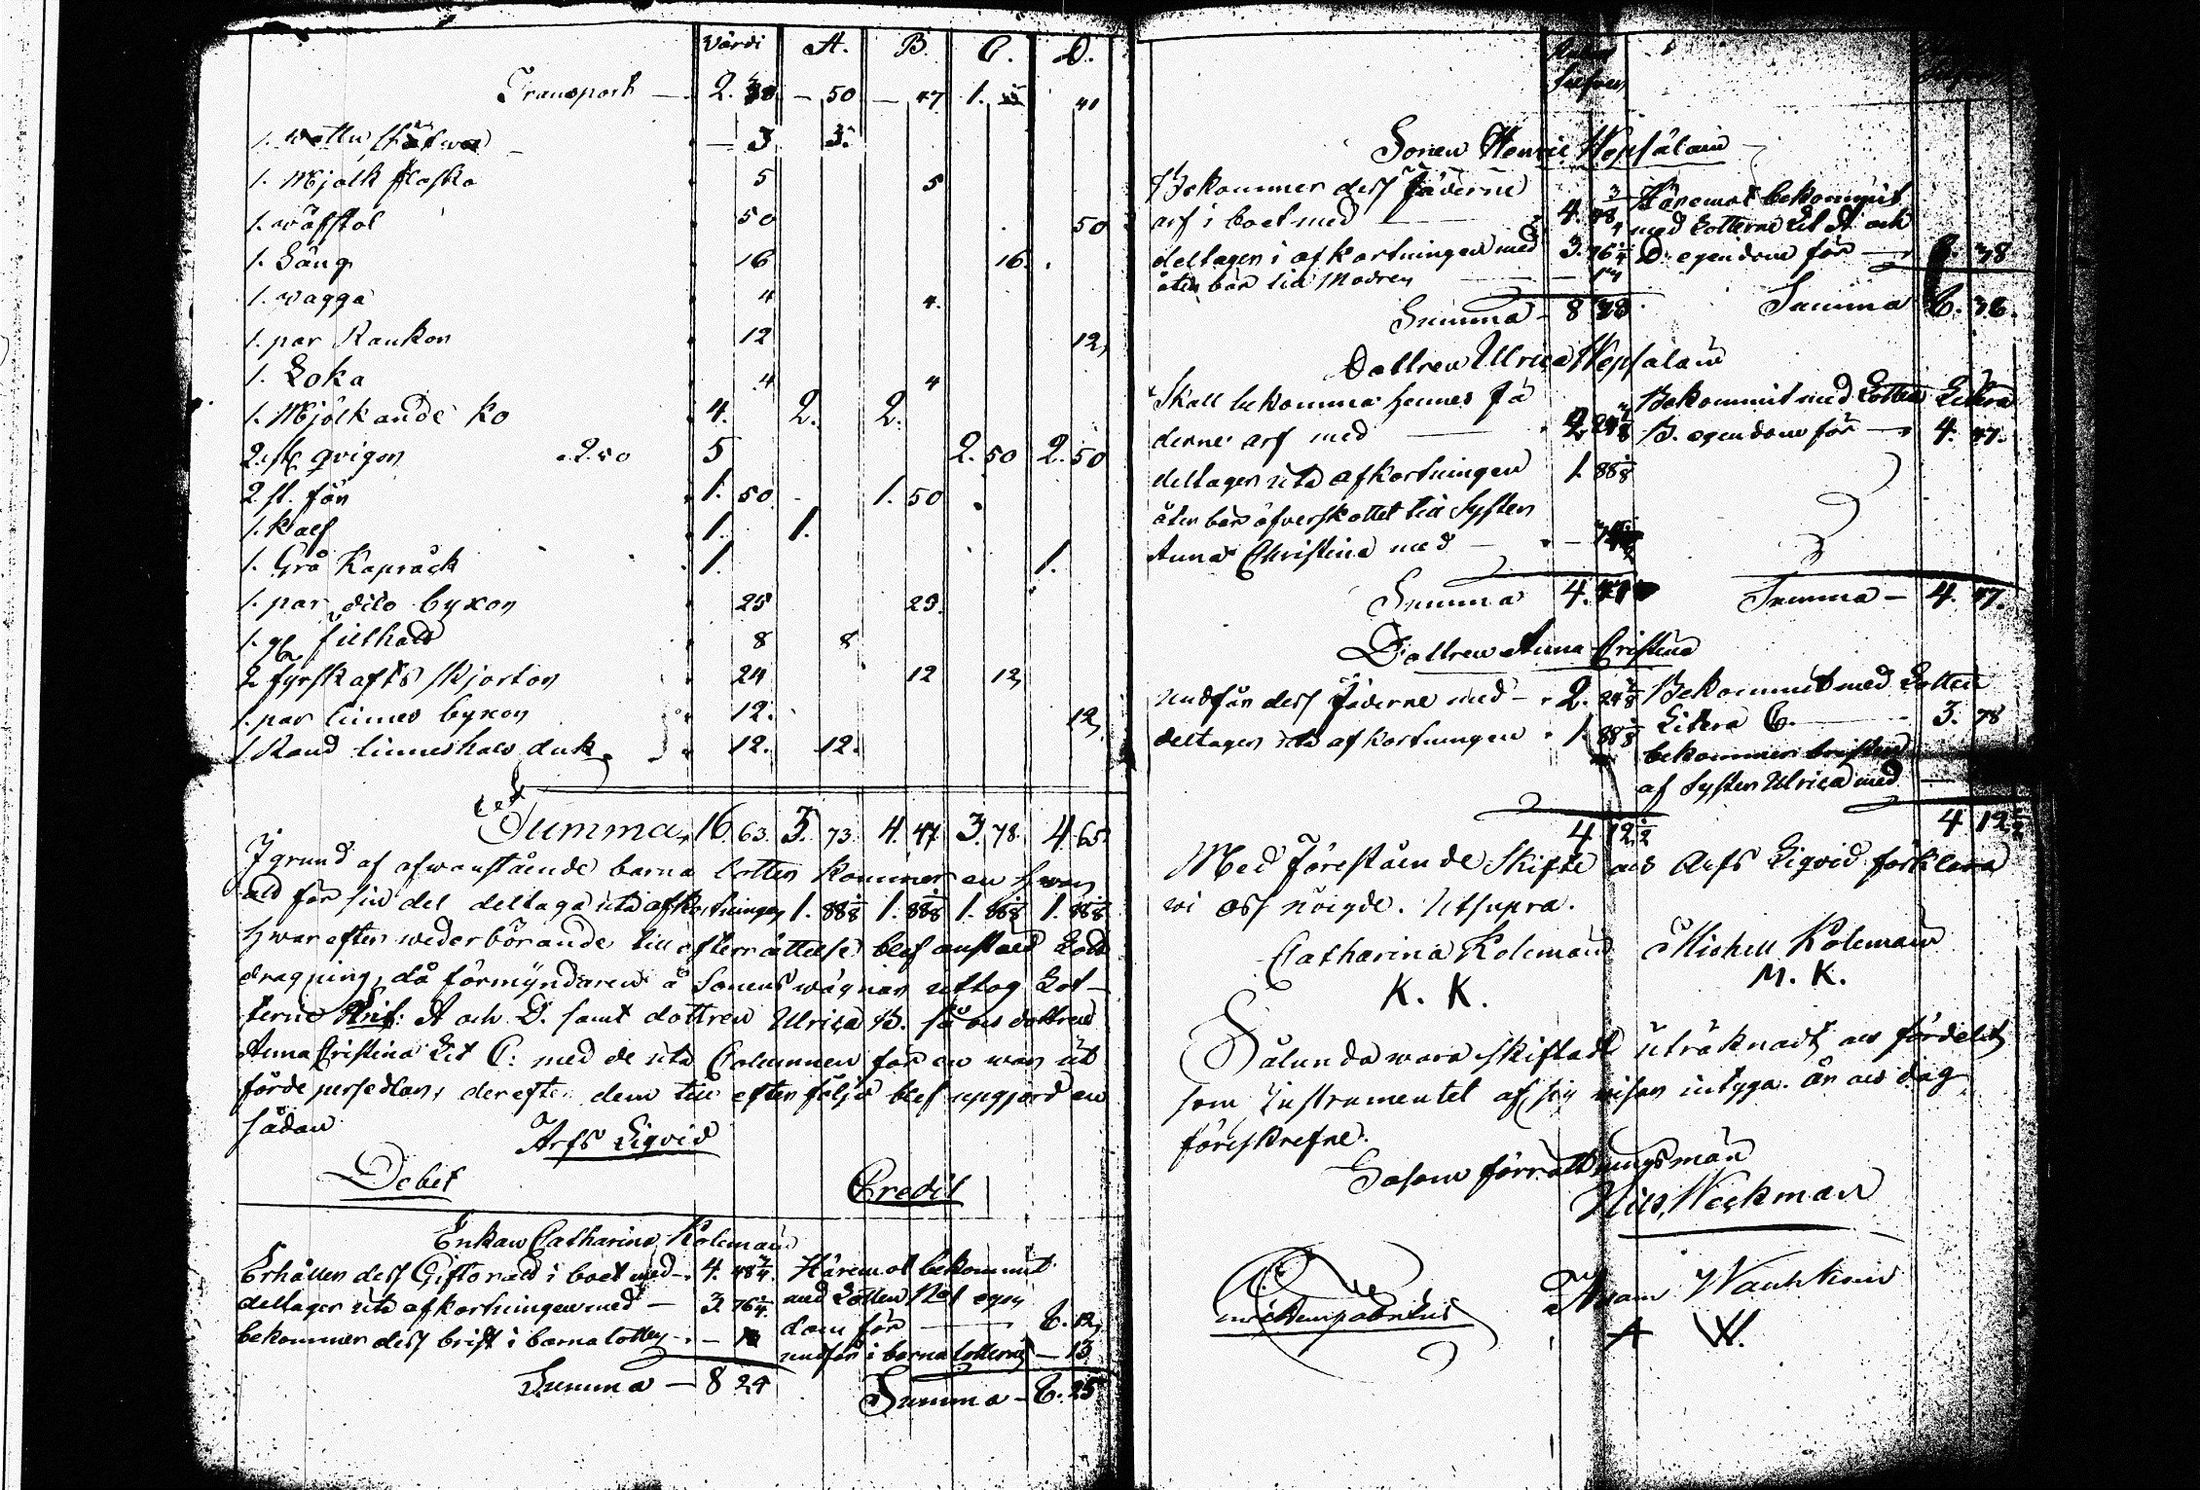 Värdi A. B. C. D.
Transport — 2. 38 — 50 — 47 1. 41
1. — 3 3.
1. Mjölk flaska 5 5
1. wäfstol 50 50
1. Säng 16 16.
1. wagga 4 4.
1. par Kankor 12 12,
1. Loka 4 4
1. Mjölkande ko 4. 2. 2.
2. st. qvigor a 2.50 5 2.50 2.50
2 st. får 1. 50 1. 50
1. kalf 1. 1.
1. Grå Kapråck 1. 1.
1. par dito byxor 25 25.
1. gl filthatt 8 8
2 fyrskafts skjortor 24 12 12,
1. par linnes byxor 12. 12,
1 Rand linneshals duk 12. 12.
Summa, 16. 63. 3. 73. 4. 47 3. 78. 4. 65.
I grund af ofwanstående barna lotter kommer en hwar
ald för sin del deltaga uti afkortningen 1. 88 1. 88 1. 88 1. 88
hwarefter wederbörande till efterrättelse blef anstäld Lott
dragning, då förmyndaren å Sonens wägnar uttog Lot-
terne A och D. samt dottren Ulrica B. så ock dottren
Anna Cristina Lit C: med de uti Columnen för en war ut
förde persedlar, derefter dem till efterföljd blef upgjord en
sådan
Arfs Liqvid
Debet Credit
Enkan Catharina Kolcman
Erhåller dess Giftorätt i boet med 4. 48 Häremot bekommit
deltager uti afkortningen med — 3. 76 med Lotten No 1 egen
bekommer dess brist i barna lotten — dom för — 6. 12,
undfår i barna lotterne — 13
Summa — 8 24 Summa — 6. 25
Sonen Henric Wepsäläin
Bekommer dess Fäderne Häremot bekommit
arf i boet med 4. 98 med Lotterne Lit A och
deltager i afkortningen med 3. 76 D. egendom för 8. 38
åter bär till Modren
Summa — 8 Summa 8. 38.
Dottren Ulrica Wepsäläin
Skall bekomma hennes fä Bekommit med Lotten Litera
derne arf med 2 24 B. egendom för — 4. 47.
deltager uti afkortningen 1. 88
åter bär öfverskottet till Systen
Anna Christina med —
Summa 4. 47 Summa — 4. 47.
Dottren Anna Cristina
undfår dess Fäderne med — 2. 24 Bekommit med Lotten
deltager uti afkortningen 1. 88 Litera C. 3. 78
bekommer bristen
af Systen Ulrica med —
4 12 1/2 4 12 1/2
Med Förestående Skifte ock Arfs Liqvid förklara
wi oss nöigde. Utsupra.
Catharina Kolcman Michell Kolcman
K. K. M. K.
Sålunda wara skiftadt uträknadt ock fördelt
som Instrumentet af sig wisar intyga. år ock dag
föreskrefne.
Såsom förrättningsmän
Nils Weckman
Adam Wauhkoin
A W.